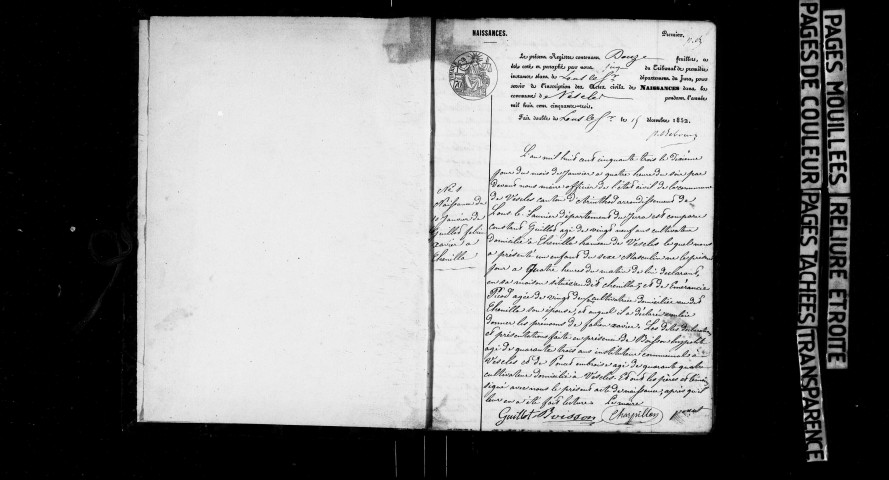 NAISSANCES.
Premier.
Le présent Registre contenant Douze feuillets, a
été coté et paraphé par nous juge du Tribunal de première
instance séant de Lons le S.r département du Jura, pour
servir de l'inscription des Actes civils de NAISSANCES dans la
commune de Vescles pendant l'année
mil huit cent cinquante-trois.
Fait double de Lons le S.r le 15 décembre 1852.
N.o 1
Naissance de
Janvier de
Guillot fabien
xavier a
Chenilla
L'an mil huit cent cinquante trois le Dixième
jour du mois de Janvier a quatre heure du soir par
devant nous maire officier de l'état civil de la commune
de Vescles canton d'Arinthod arrondissement de
Lons le Saunier département du Jura est comparu
constant Guillot agé de vingt neuf ans cultivateur
domicilié a Chenilla hameau de Vescles lequel nous
a présenté un enfant du sexe Masculin né le présent
jour a quatre heures du matin de lui déclarant,
en sa maison située audit chenilla, et de Emerancie
Picod agée de vingt ans cultivatrice domiciliée audit
Chenilla son épouse, et auquel il a déclaré vouloir
donner les prénoms de fabien xavier. Les dites déclaration
et présentation faite en présence de Boisson hyppolite
agé de quarante trois ans instituteur communal a
Vescles et de agé de quarante quatre
cultivateur domicilié a Vescles. Et ont les pères et témoins
signé avec nous le présent acte de naissance, après qu'il
leur en a été fait lecture. Le maire
Guillot Boisson Charpillon
PAGES MOUILLEES RELIURE ETROITE
PAGES DE COULEUR PAGES TACHEES TRANSPARENCE